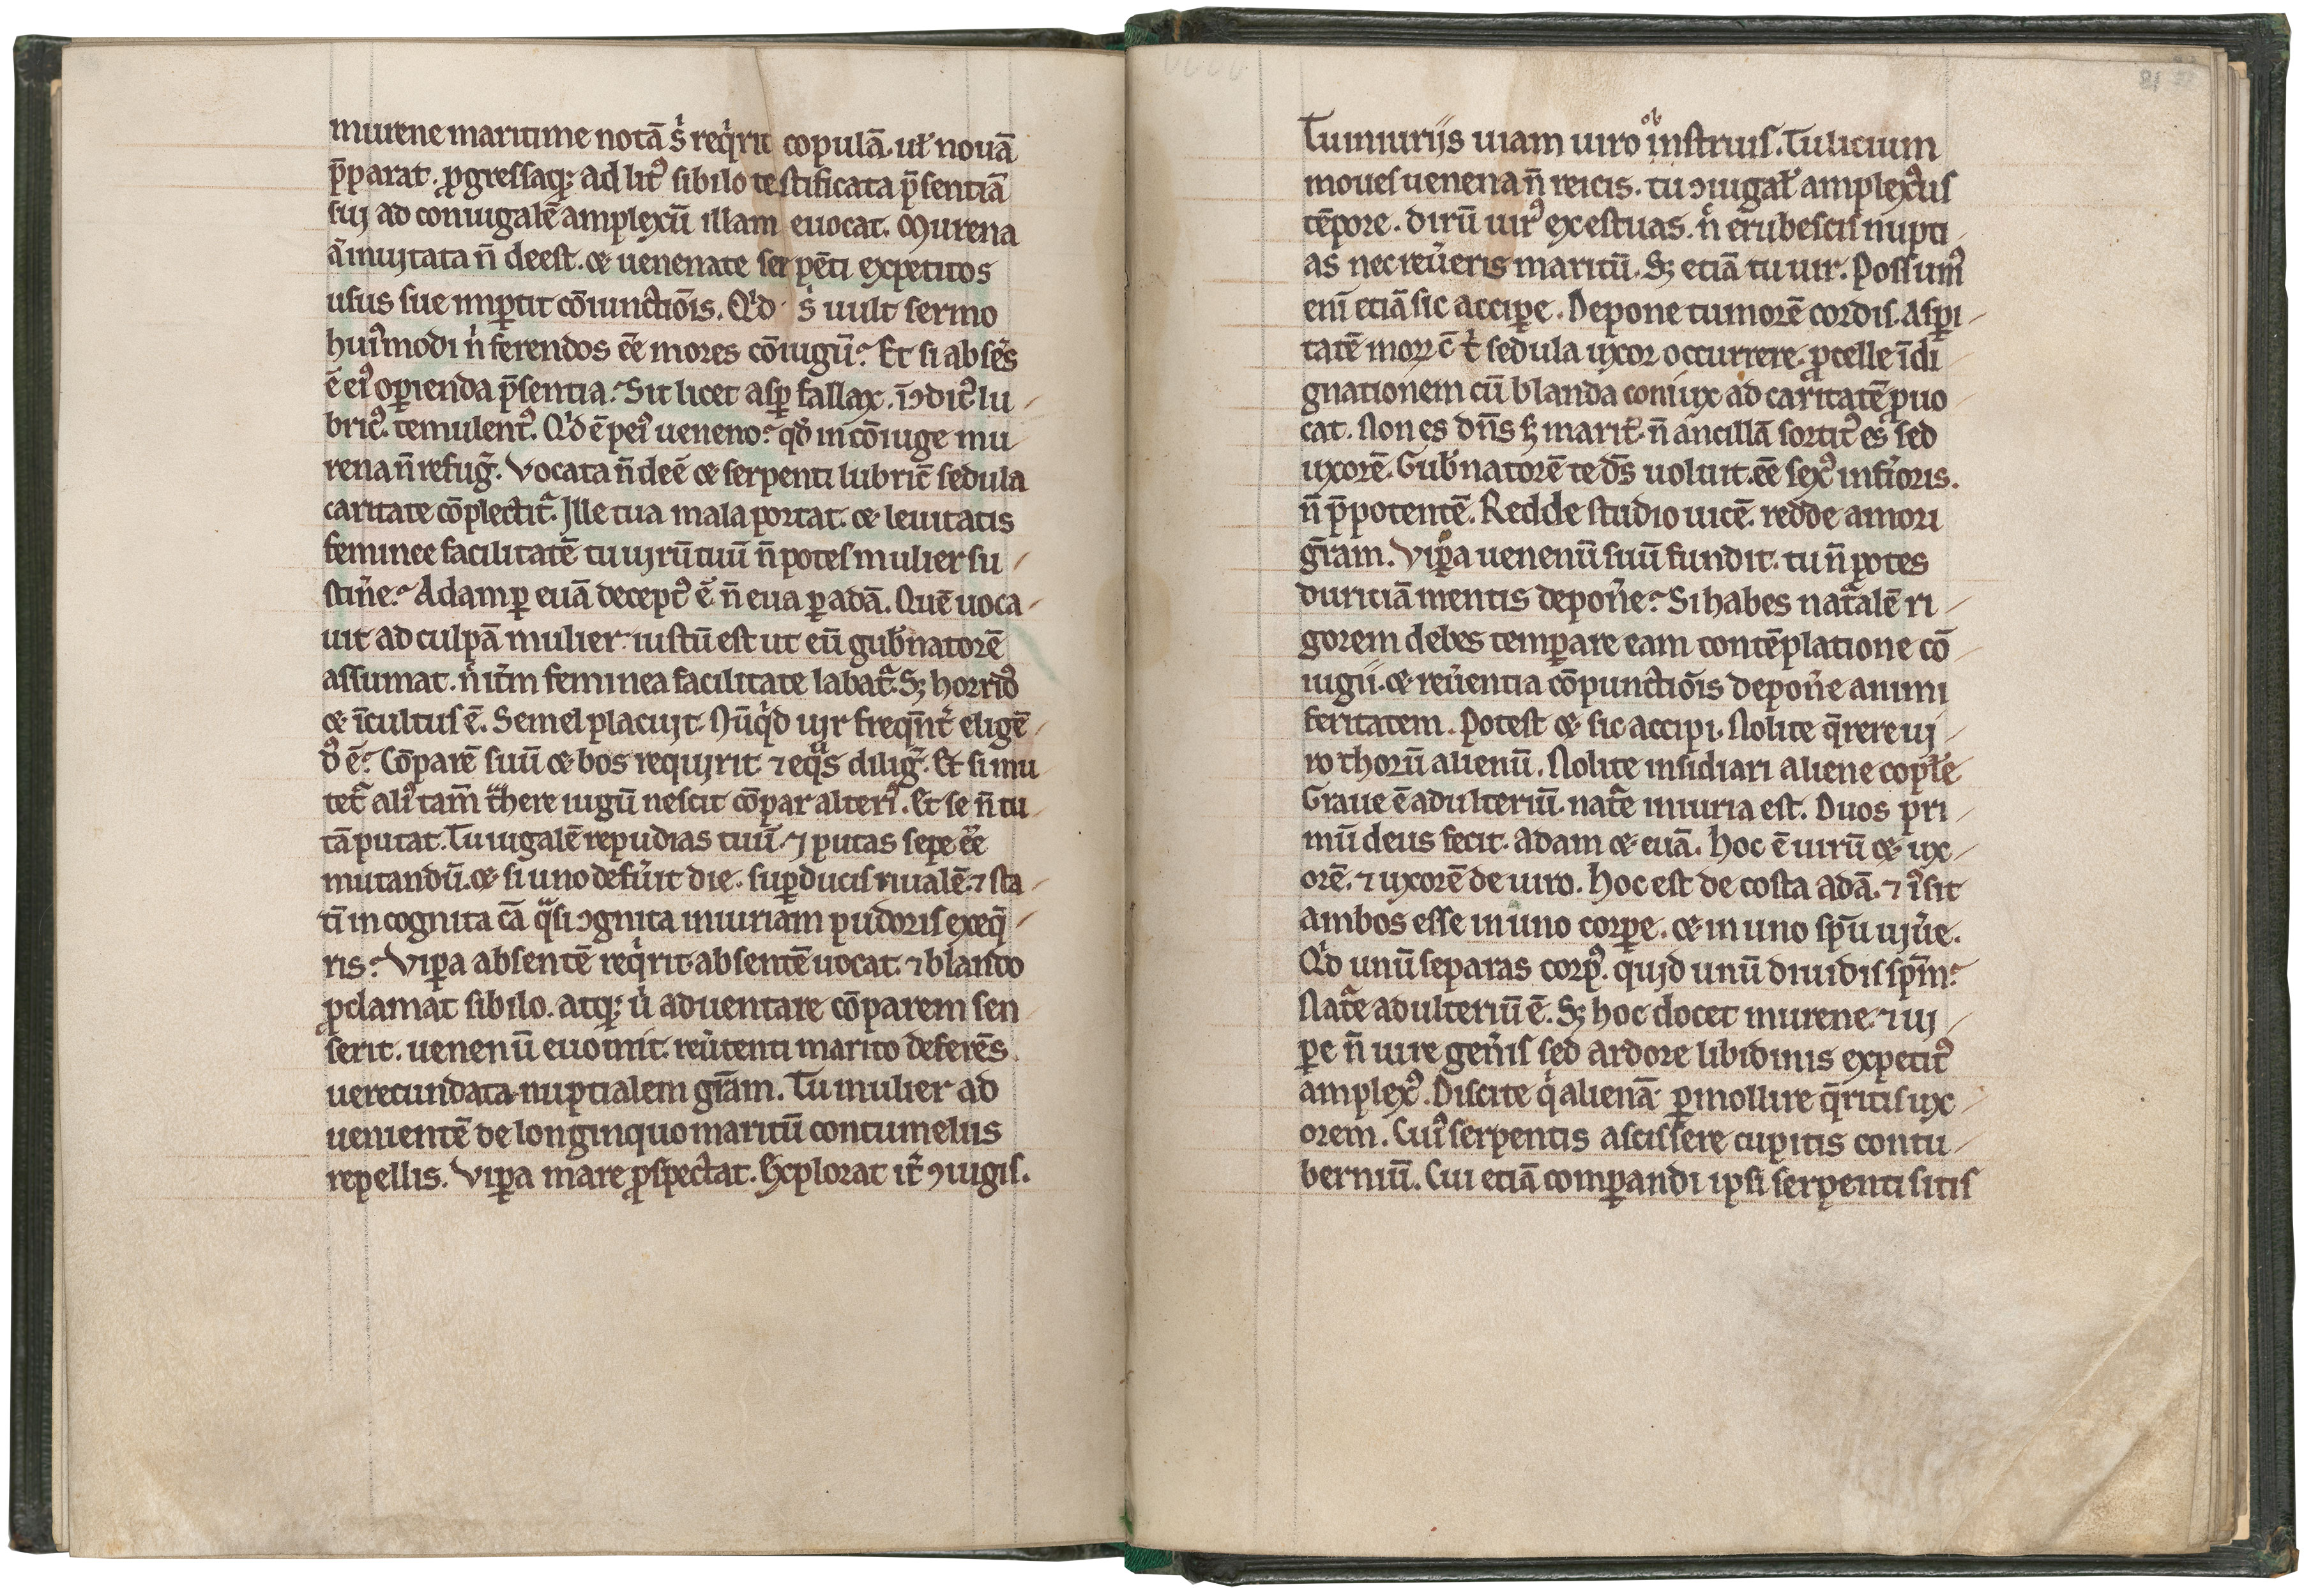 murene maritime notā s̄ req̄rit copulā. ul̄ nouā
p̄parat. ꝓgressaq; ad litꝰ sibilo testificata p̄sentiā
sui ad coniugalē amplexū illam euocat. Murena
aū inuitata n̄ deest. ⁊ uenenate serpēti expetitos
usus sue impertit cōiunctiōis. Qͥd s̄ uult sermo
huiꝰmodi n̄ ferendos eē mores cōiugū? Et si absēs
ē eiꝰ oꝑienda p̄sentia? Sit licet asꝑ fallax. īↄditꝰ lu
bricꝰ. temulentꝰ. Qͥd ē peiꝰ ueneno? qd̄ in cōiuge mu
rena n̄ refug̃. Vocata n̄ deē ⁊ serpenti lubric̄ sedula
caritate cōplectit᷑. Ille tua mala portat ⁊ leuitatis
feminee facilitatē tu uirū tuū n̄ potes mulier su
stin̄e? Adam ꝑ euā deceptꝰ ē. n̄ eua ꝑ adā. Quē uoca
uit ad culpā mulier iustū est ut eū gub̄natorē
assumat. n̄ itm̄ feminea facilitate labat᷑. Sꝫ horridꝰ
⁊ īcultus ē. Semel placuit. Nūqͥd uir freqn̄t᷑ eligē
dꝰ ē? Cōparē suū ⁊ bos requirit ⁊ eqͧs dilig̃. Et si mu
tet᷑ aliꝰ tam̄ tͣhere iugū nescit cōpar alteriꝰ. Et se n̄ tu
tā putat. Tu iugalē repudias tuū. ⁊ putas sepe eē
mutandū. ⁊ si uno defūit die. suꝑducis riualē. ⁊ sta
tī incognita cā qͣsi ↄgnita iniuriam pudoris exeq̄
ris? Viꝑa absentē req̄rit absentē uocat ⁊ blando
ꝓclamat sibilo. atq; ū aduentare cōparem sen
serit. uenenū euomit. reūtenti marito deferēs
uerecundata nuptialem gr̄am. Tu mulier ad
uenientē de longinquo maritū contumeliis
repellis. Viꝑa mare ꝓspectat. Explorat it̄ ꝯiugis.
Tu iniuriis uiam uiro ob instruis. Tu licium
moues uenena n̄ reicis. tu ↄiugal̄ amplexꝰus
tēpore. dirū uirꝰ exestuas. n̄ erubescis nupti
as nec reūeris maritū. Sꝫ etiā tu uir. Possumꝰ
enī etiā sic acciꝑe. Depone tumorē cordis. Asꝑi
tatē moꝝ c̄ t̄ sedula uxor occurrere. ꝓcelle īdi
gnationem cū blanda coniux ad caritatē ꝓuo
cat. Non es dn̄s sꝫ maritꝰ. n̄ ancillā sortitꝰ es sed
uxorē. Gub̄natorē te dš uoluit eē sexꝰ inf̄ioris.
n̄ p̄potentē. Redde studio uicē. redde amori
gr̄am. Viꝑa uenenū suū fundit. tu n̄ potes
duritiā mentis depon̄e? Si habes nat᷑alē ri
gorem debes temꝑare eam contēplatione cō
iugii. ⁊ reūentia cōpunctiōis depon̄e animi
feritatem. Potest ⁊ sic accipi. Nolite q̄rere ui
ro thorū alienū. Nolite insidiari aliene copl̄e
Graue ē adulteriū. nat᷑e iniuria est. Duos pri
mū deus fecit. Adam ⁊ euā. Hoc ē uirū ⁊ ux
orē. ⁊ uxorē de uiro. hoc est de costa adā. ⁊ iꝰsit
ambos esse in uno corꝑe. ⁊ in uno spū uiūe.
Qͥd unū separas corpꝰ. quid unū diuidis spm̄?
Nat᷑e adulteriū ē. Sꝫ hoc docet murene ⁊ ui
ꝑe n̄ iure gen̄is sed ardore libidinis expetitꝰ
amplexꝰ. Discite q̄ alienā ꝑmollire q̄ritis ux
orem. Cuiꝰ serpentis ascissere cupitis contu
berniū. Cui etiā comꝑandi ipsi serpenti sitis